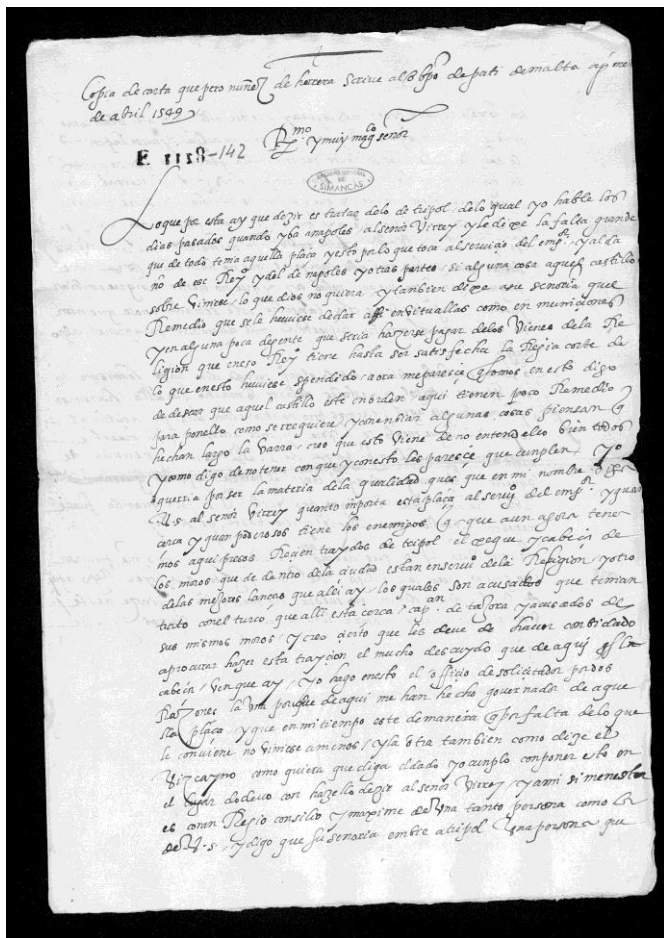 Copia de carta que pero nuñez de herrera scrive al obpo de pati de malta a p.º
de abril 1549
R.mo y muy mag.co señor
E 1118-142
ARCHIVO GENERAL DE SIMANCAS
Lo que por esta ay que dezir es tratar delo de tripol, delo qual yo hable los
dias pasados quando yba a napoles, al señor Virrey y le dixe la falta grande
que de todo tenia aquella plaça y esto por lo que toca al servicio del emp.or y al da
no de ese Rey.no y del de napoles y otras partes, si alguna cosa aquel castillo
sobre viniese, lo que dios no quiera, y tambien dixe a su señoria quel
Remedio que se le huviese de dar assi en vituallas como en municiones
y en alguna poca de gente que seria hazerse pagar delos Vienes dela Re
ligion que en ese Rey.no tiene hasta ser satisfecha la Regia corte de
lo que en esto huviese spendido, aora me paresce q somos en esto digo
de desear que aquel castillo este en orden, aqui tienen poco Remedio
para ponello como se requiere y con enbiar algunas cosas piensan q
hechan largo la varra, creo que esto viene de no entendello bien todos
y como digo de no tener con que y con esto les paresce que cunplen, yo
querria por ser la materia dela qualidad que es que en mi nombre
V. s. al señor Virrey quanto inporta esta plaça al servi.º del emp.or y quan
cerca y quan poderosos tiene los enemigos q que aun agora tene
mos aqui presos Rezien traydos de tripol el xeque y cabecis de
los moros que de dentro dela ciudad estan en servi.º dela Religion, y otro
delas mejores lanças que alli ay, los quales son acusados que tenian
trato con el turco, que alli esta cerca, cap.an de tajora y acusados de
sus mismos moros, y creo cierto que les deve de haver conbidado
a procurar hazer esta traycion el mucho descuydo que de aqui
ven que ay, yo hago en esto el officio de solicitador por dos
Razones, la una porque de aqui me han hecho governador de aque
lla plaça y que en mi tiempo este de manera q por falta delo que
le conviene no viniese a menos, y la otra tambien como dize el
Vizcayno como quiera que diga el dado yo cunplo con poner esto en
el lugar do devo con hazello dezir al señor Virrey, y a mi si menester
es coran Regio consilio y maxime de una tanto persona como la
de V. s., y digo que su señoria embie a tripol una persona que